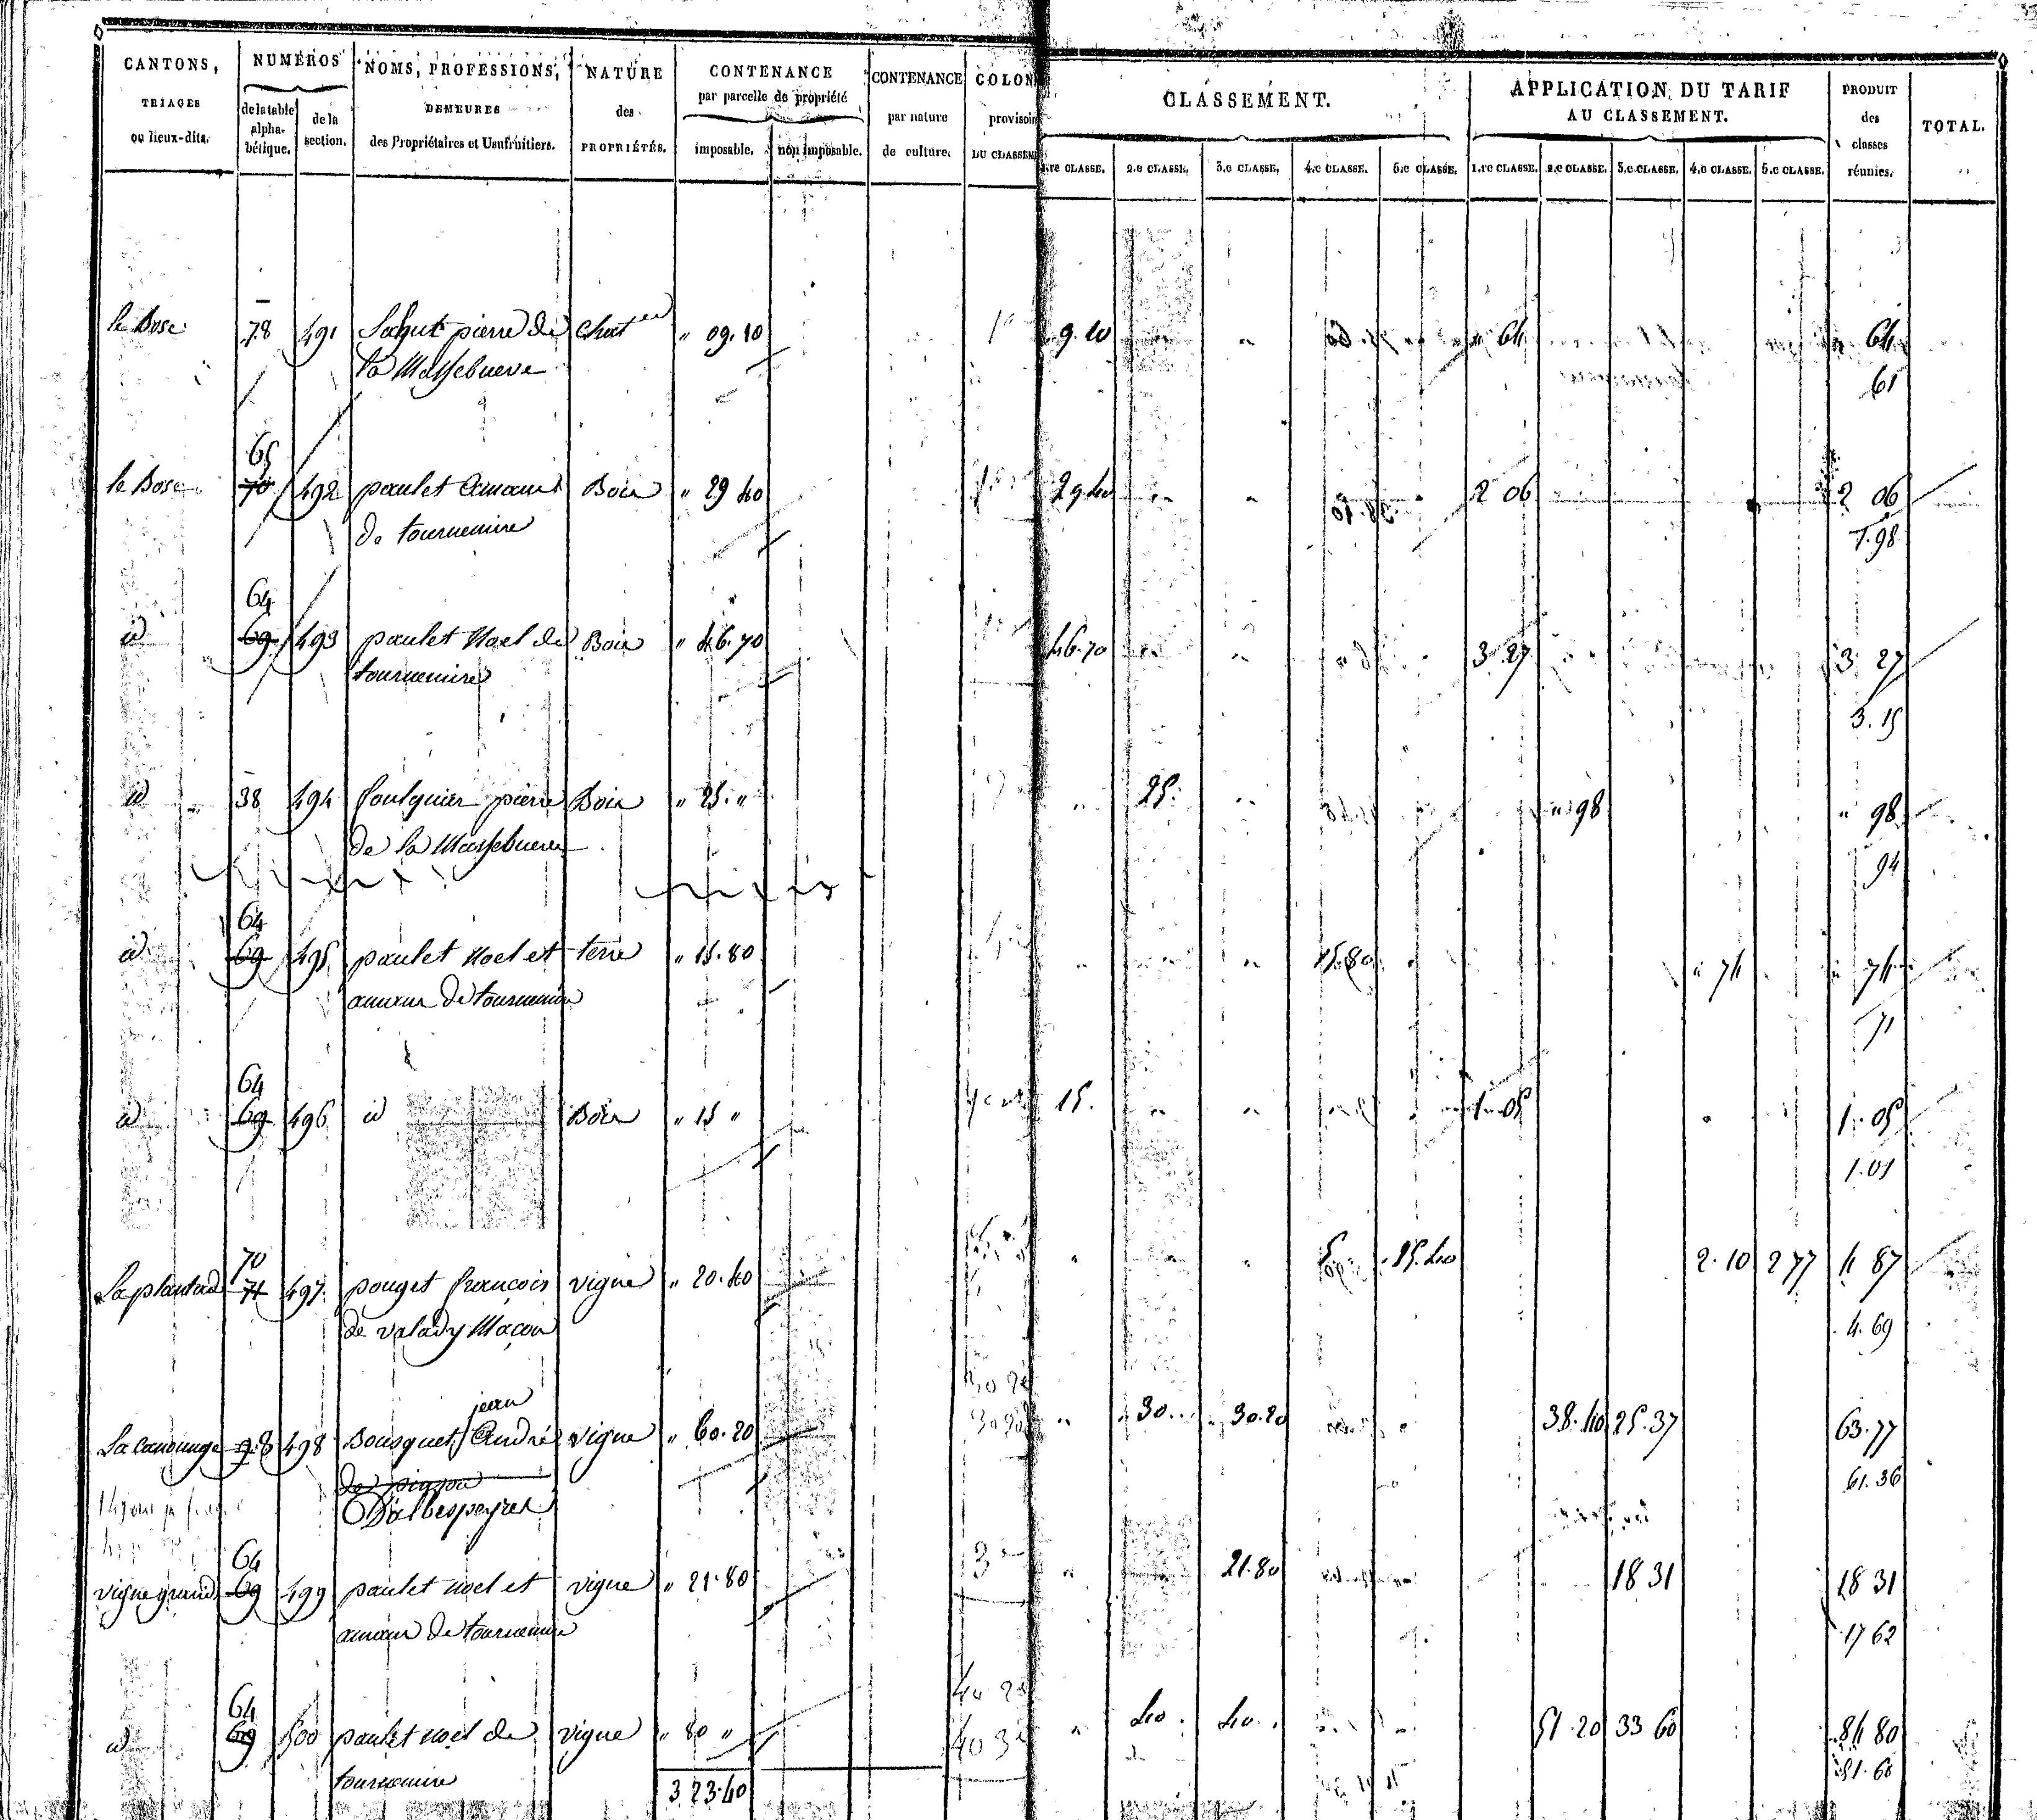 CANTONS, TRIAGES ou lieux-dits. | NUMÉROS de la table alphabétique. | de la section. | NOMS, PROFESSIONS, DEMEURES des Propriétaires et Usufruitiers. | NATURE des PROPRIÉTÉS. | CONTENANCE par parcelle de propriété imposable. | non imposable. | CONTENANCE par nature de culture. | COLON provisoir DU CLASSEM | CLASSEMENT. 1.re CLASSE. | 2.e CLASSE. | 3.e CLASSE. | 4.e CLASSE. | 5.e CLASSE. | APPLICATION DU TARIF AU CLASSEMENT. 1.re CLASSE. | 2.e CLASSE. | 3.e CLASSE. | 4.e CLASSE. | 5.e CLASSE. | PRODUIT des classes réunies. | TOTAL.
le Bosc 78 491 pierre de chat " 09.10 9.10 " 64 " 64
la Massebuere 61
65
le Bosc 70 492 paulet Amans Bois " 29 40 29.40 2 06 2 06
de tournemire 1.98
64
id 69 493 paulet Noel de Bois " 46.70 46.70 3 27 3 27
tournemire 3.15
id 38 494 foulquier pierre Bois " 25. " 25. " 98 " 98
de la Massebuere 94
64
id 69 495 paulet Noel et terre " 15.80 15.80 " 74 " 74
de tournemire 71
64
id 69 496 id Bois " 15 " 15. 1.05 1.05
1.01
70
La plantade 71 497 pouget francois vigne " 20.40 5 15.40 2.10 2 77 4 87
de valady Maçon 4.69
jean
La canounge 98 498 Bousquet André vigne " 60.20 30 30.20 38.40 25.37 63.77
61.36
D'albespeyres
64
vigne grande 69 499 paulet noel et vigne " 21.80 3e 21.80 18 31 18 31
de tournemire 17 62
64 40 2e
id 69 500 paulet noel de vigne " 80 " 40 3e 40. 40. 51.20 33 60 84 80
tournemire 81.60
3 23.40